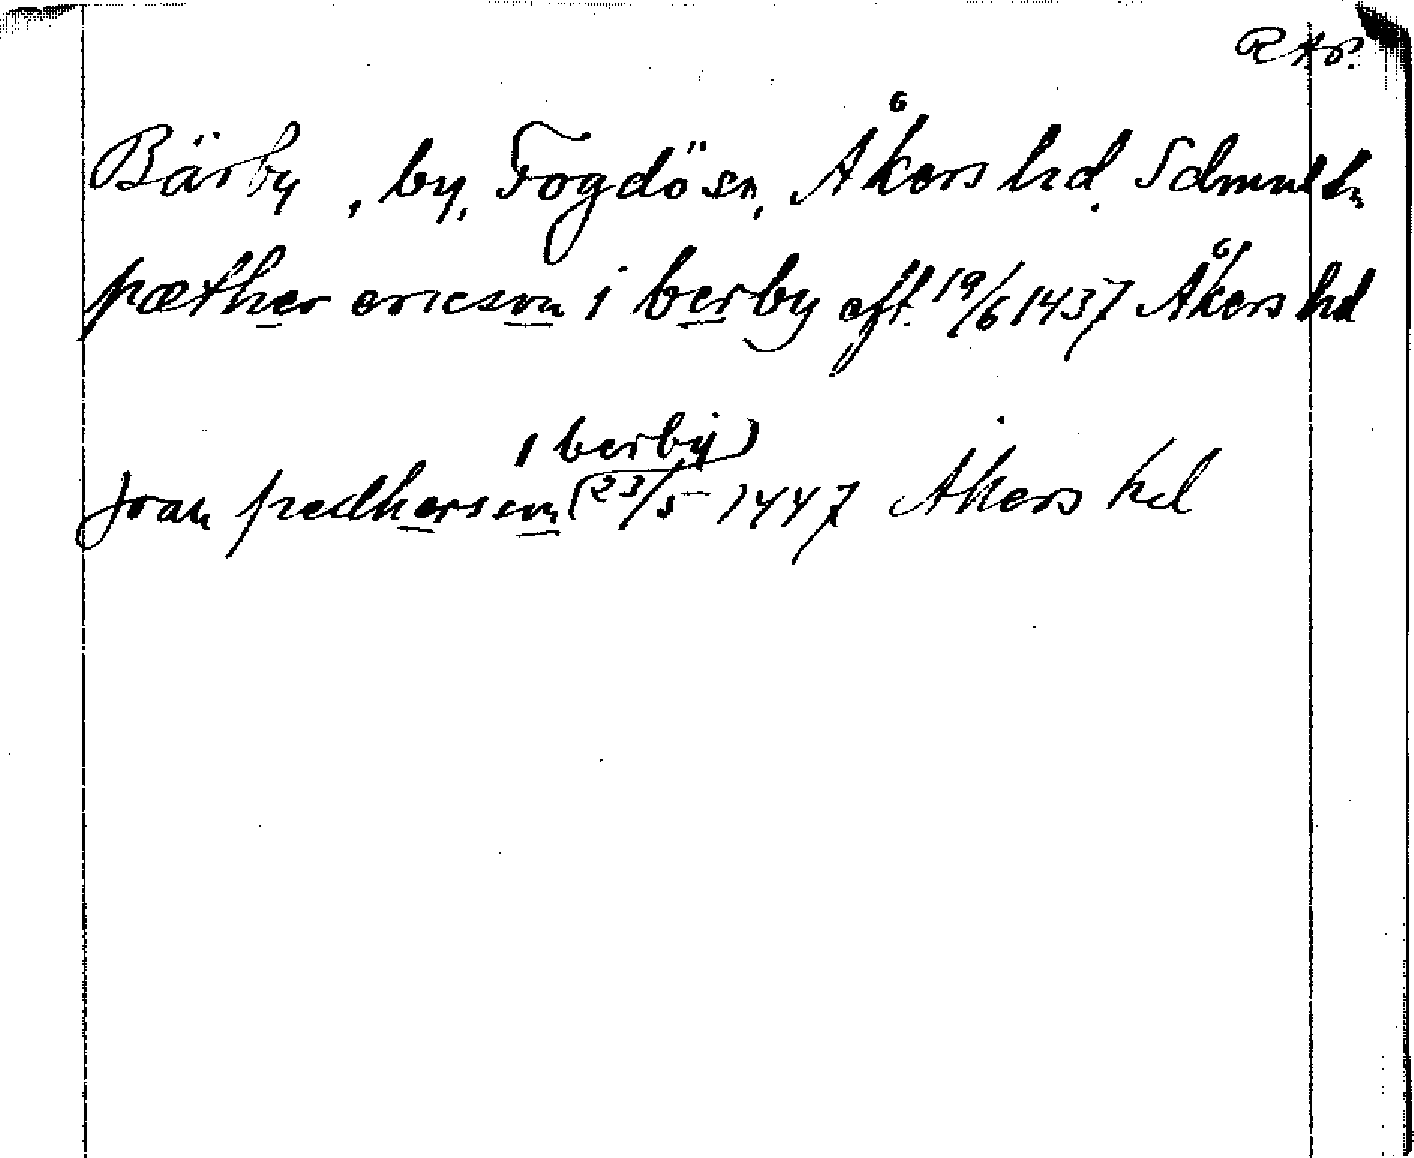 RAp.
Bärby, by, Fogdö sn, Åkers hd. Sdmnl ln
pæther ericson i berby eft. 19/6 1437 Åkers hd
i berby
Joan pedherson (23/5 1447 Åkers hd